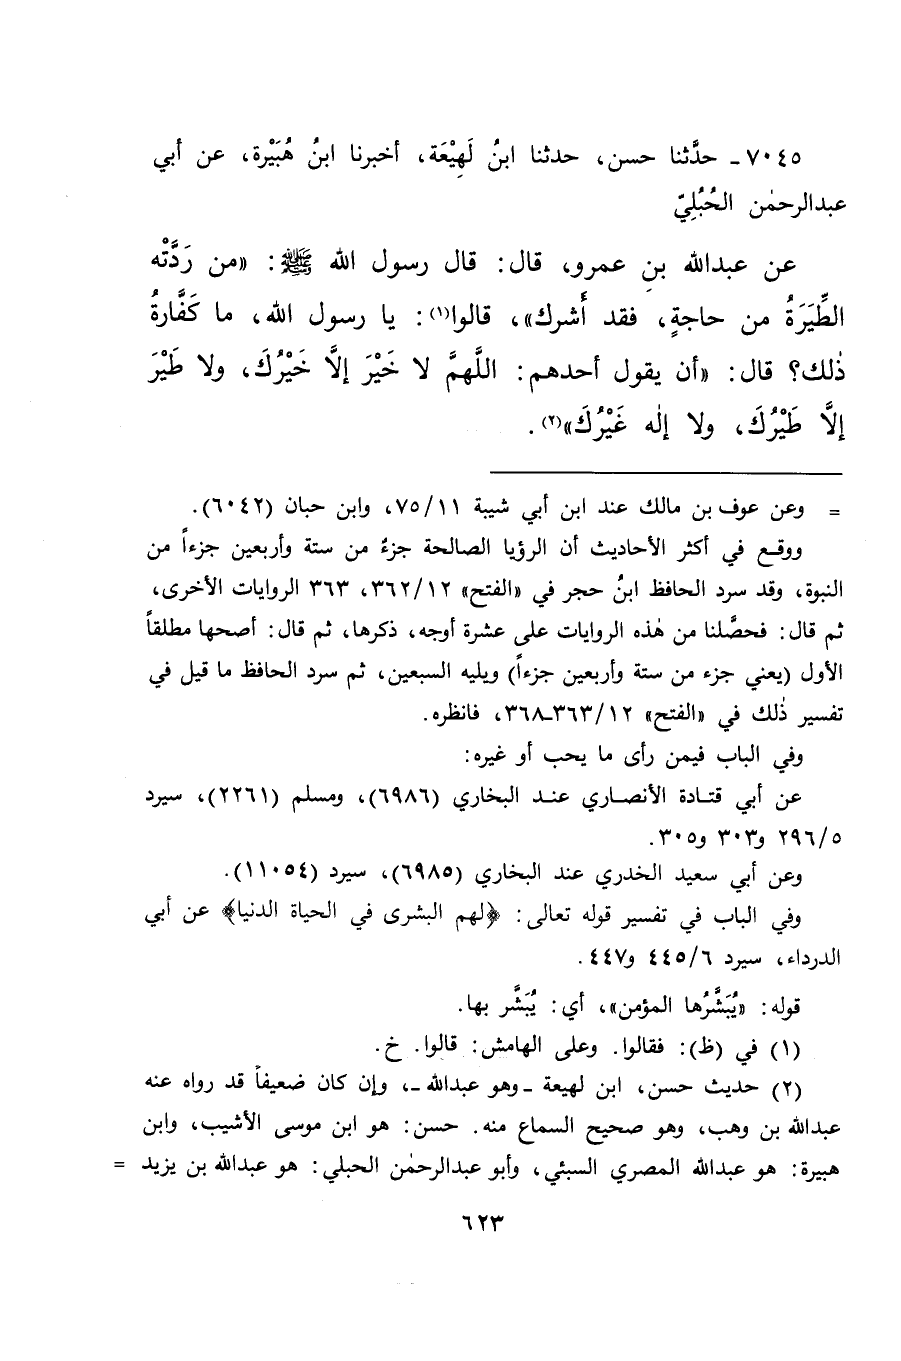 ٧٠٤٥ـ حدَّثنا حسن، حدثنا ابنُ لَهِيْعَة، أخبرنا ابنُ هُبَيْرة، عن أبي
عبدالرحمٰن الحُبُلِيّ
عن عبدالله بنِ عمرو، قال: قال رسول الله ﷺ: «من رَدَّتْه
الطِّيَرَةُ من حاجةٍ، فقد أَشرك»، قالوا(١): يا رسول الله، ما كَفَّارةُ
ذٰلك؟ قال: «أن يقول أحدهم: اللَّهمَّ لا خَيْرَ إلَّا خَيْرُكَ، ولا طَيْرَ
إلَّا طَيْرُكَ، ولا إلٰه غَيْرُكَ»(٢).
= وعن عوف بن مالك عند ابن أبي شيبة ٧٥/١١، وابن حبان (٦٠٤٢).
ووقع في أكثر الأحاديث أن الرؤيا الصالحة جزءٌ من ستة وأربعين جزءاً من
النبوة، وقد سرد الحافظ ابنُ حجر في «الفتح» ٣٦٢/١٢، ٣٦٣ الروايات الأخرى،
ثم قال: فحصَّلنا من هٰذه الروايات على عشرة أوجه، ذكرها، ثم قال: أصحها مطلقاً
الأول (يعني جزء من ستة وأربعين جزءاً) ويليه السبعين، ثم سرد الحافظ ما قيل في
تفسير ذٰلك في «الفتح» ٣٦٣/١٢ـ٣٦٨، فانظره.
وفي الباب فيمن رأى ما يحب أو غيره:
عن أبي قتادة الأنصاري عند البخاري (٦٩٨٦)، ومسلم (٢٢٦١)، سيرد
٢٩٦/٥ و٣٠٣ و٣٠٥.
وعن أبي سعيد الخدري عند البخاري (٦٩٨٥)، سيرد (١١٠٥٤).
وفي الباب في تفسير قوله تعالى: ﴿لهم البشرى في الحياة الدنيا﴾ عن أبي
الدرداء، سيرد ٤٤٥/٦ و٤٤٧.
قوله: «يُبَشَّرُها المؤمن»، أي: يُبَشَّر بها.
(١) في (ظ): فقالوا. وعلى الهامش: قالوا. خ.
(٢) حديث حسن، ابن لهيعة ـ وهو عبدالله ـ، وإن كان ضعيفاً قد رواه عنه
عبدالله بن وهب، وهو صحيح السماع منه. حسن: هو ابن موسى الأشيب، وابن
هبيرة: هو عبدالله المصري السبئي، وأبو عبدالرحمٰن الحبلي: هو عبدالله بن يزيد =
٦٢٣